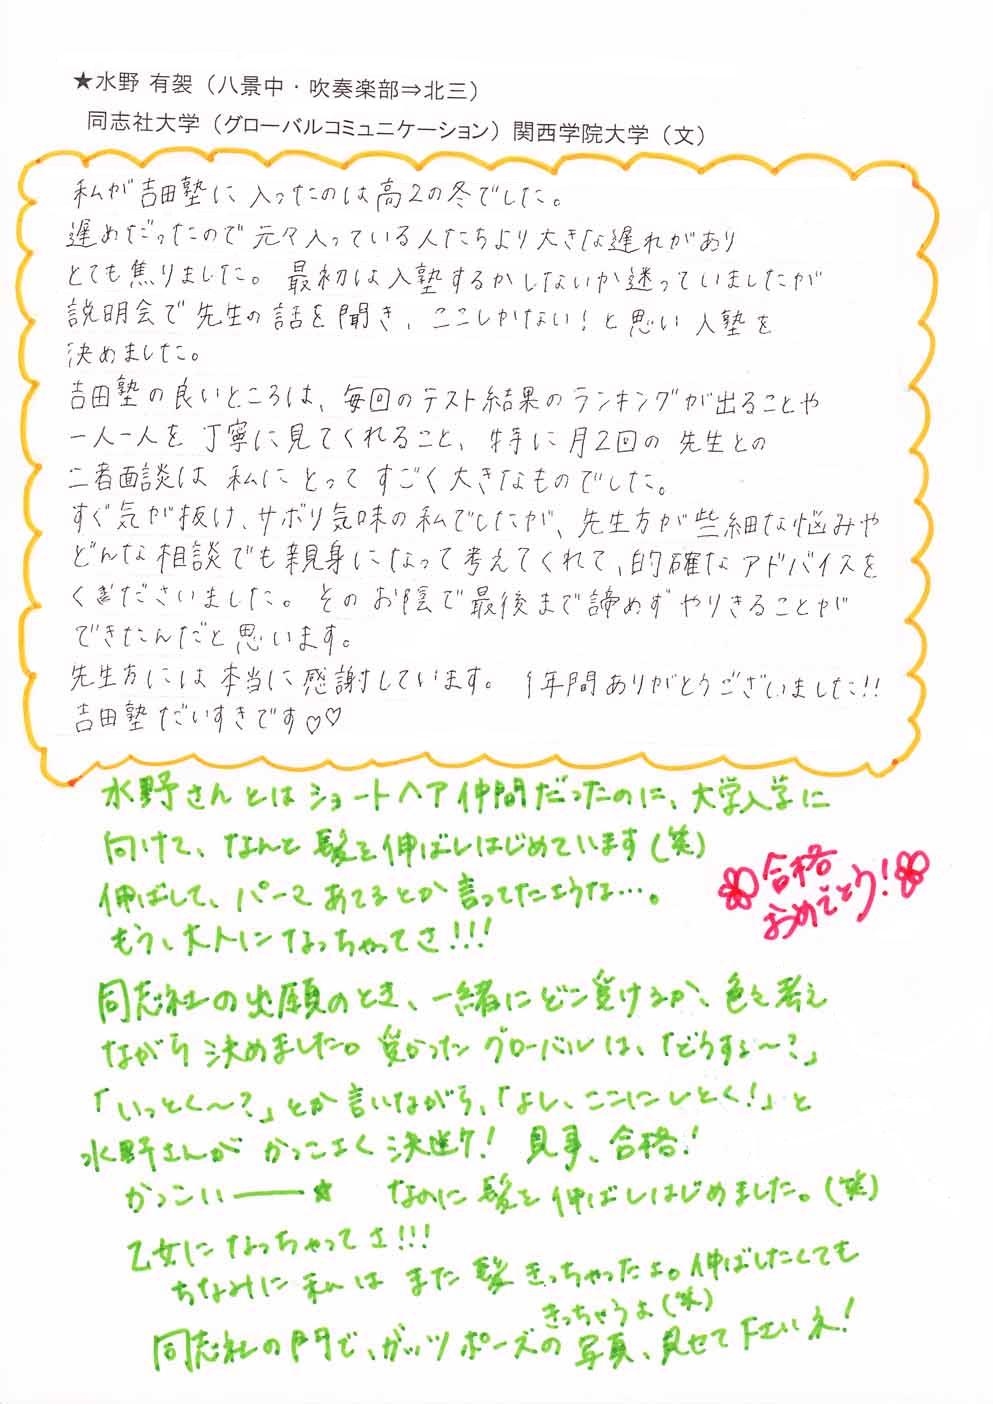 ★水野 有袈（八景中・吹奏楽部⇒北三）
同志社大学（グローバルコミュニケーション）関西学院大学（文）
私が吉田塾に入ったのは高2の冬でした。
遅めだったので元々入っている人たちより大きな遅れがあり
とても焦りました。最初は入塾するかしないか迷っていましたが
説明会で先生の話を聞き、ここしかない！と思い入塾を
決めました。
吉田塾の良いところは、毎回のテスト結果のランキングが出ることや
一人一人を丁寧に見てくれること、特に月2回の先生との
二者面談は私にとってすごく大きなものでした。
すぐ気が抜け、サボり気味の私でしたが、先生方が些細な悩みや
どんな相談でも親身になって考えてくれて、的確なアドバイスを
くださいました。そのお陰で最後まで諦めずやりきることが
できたんだと思います。
先生方には本当に感謝しています。1年間ありがとうございました!!
吉田塾だいすきです♡♡
水野さんとはショートヘア仲間だったのに、大学入学に
向けて、なんと髪を伸ばしはじめています(笑)
伸ばして、パーマあてるとか言ってたような…。
もう、大人になっちゃってさ!!!
合格
おめでとう!
同志社の出願のとき、一緒にどこ受けるか、色々考え
ながら決めました。受かったグローバルは、「どうする〜?」
「いっとく〜?」とか言いながら、「よし、ここにしとく!」と
水野さんがかっこよく決断！見事、合格！
かっこいい——★ なのに髪を伸ばしはじめました。(笑)
乙女になっちゃってさ!!!
ちなみに私はまた髪きっちゃったよ。伸ばしたくても
きっちゃうよ(笑)
同志社の門で、ガッツポーズの写真、見せて下さいネ!